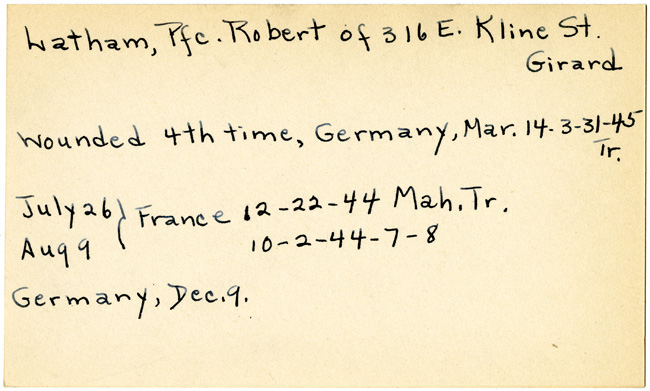 Latham, Pfc. Robert of 316 E. Kline St.
Girard
Wounded 4th time, Germany, Mar. 14- 3-31-45
Tr.
July 26 } France 12-22-44 Mah. Tr.
Aug 9 10-2-44-7-8
Germany, Dec. 9.